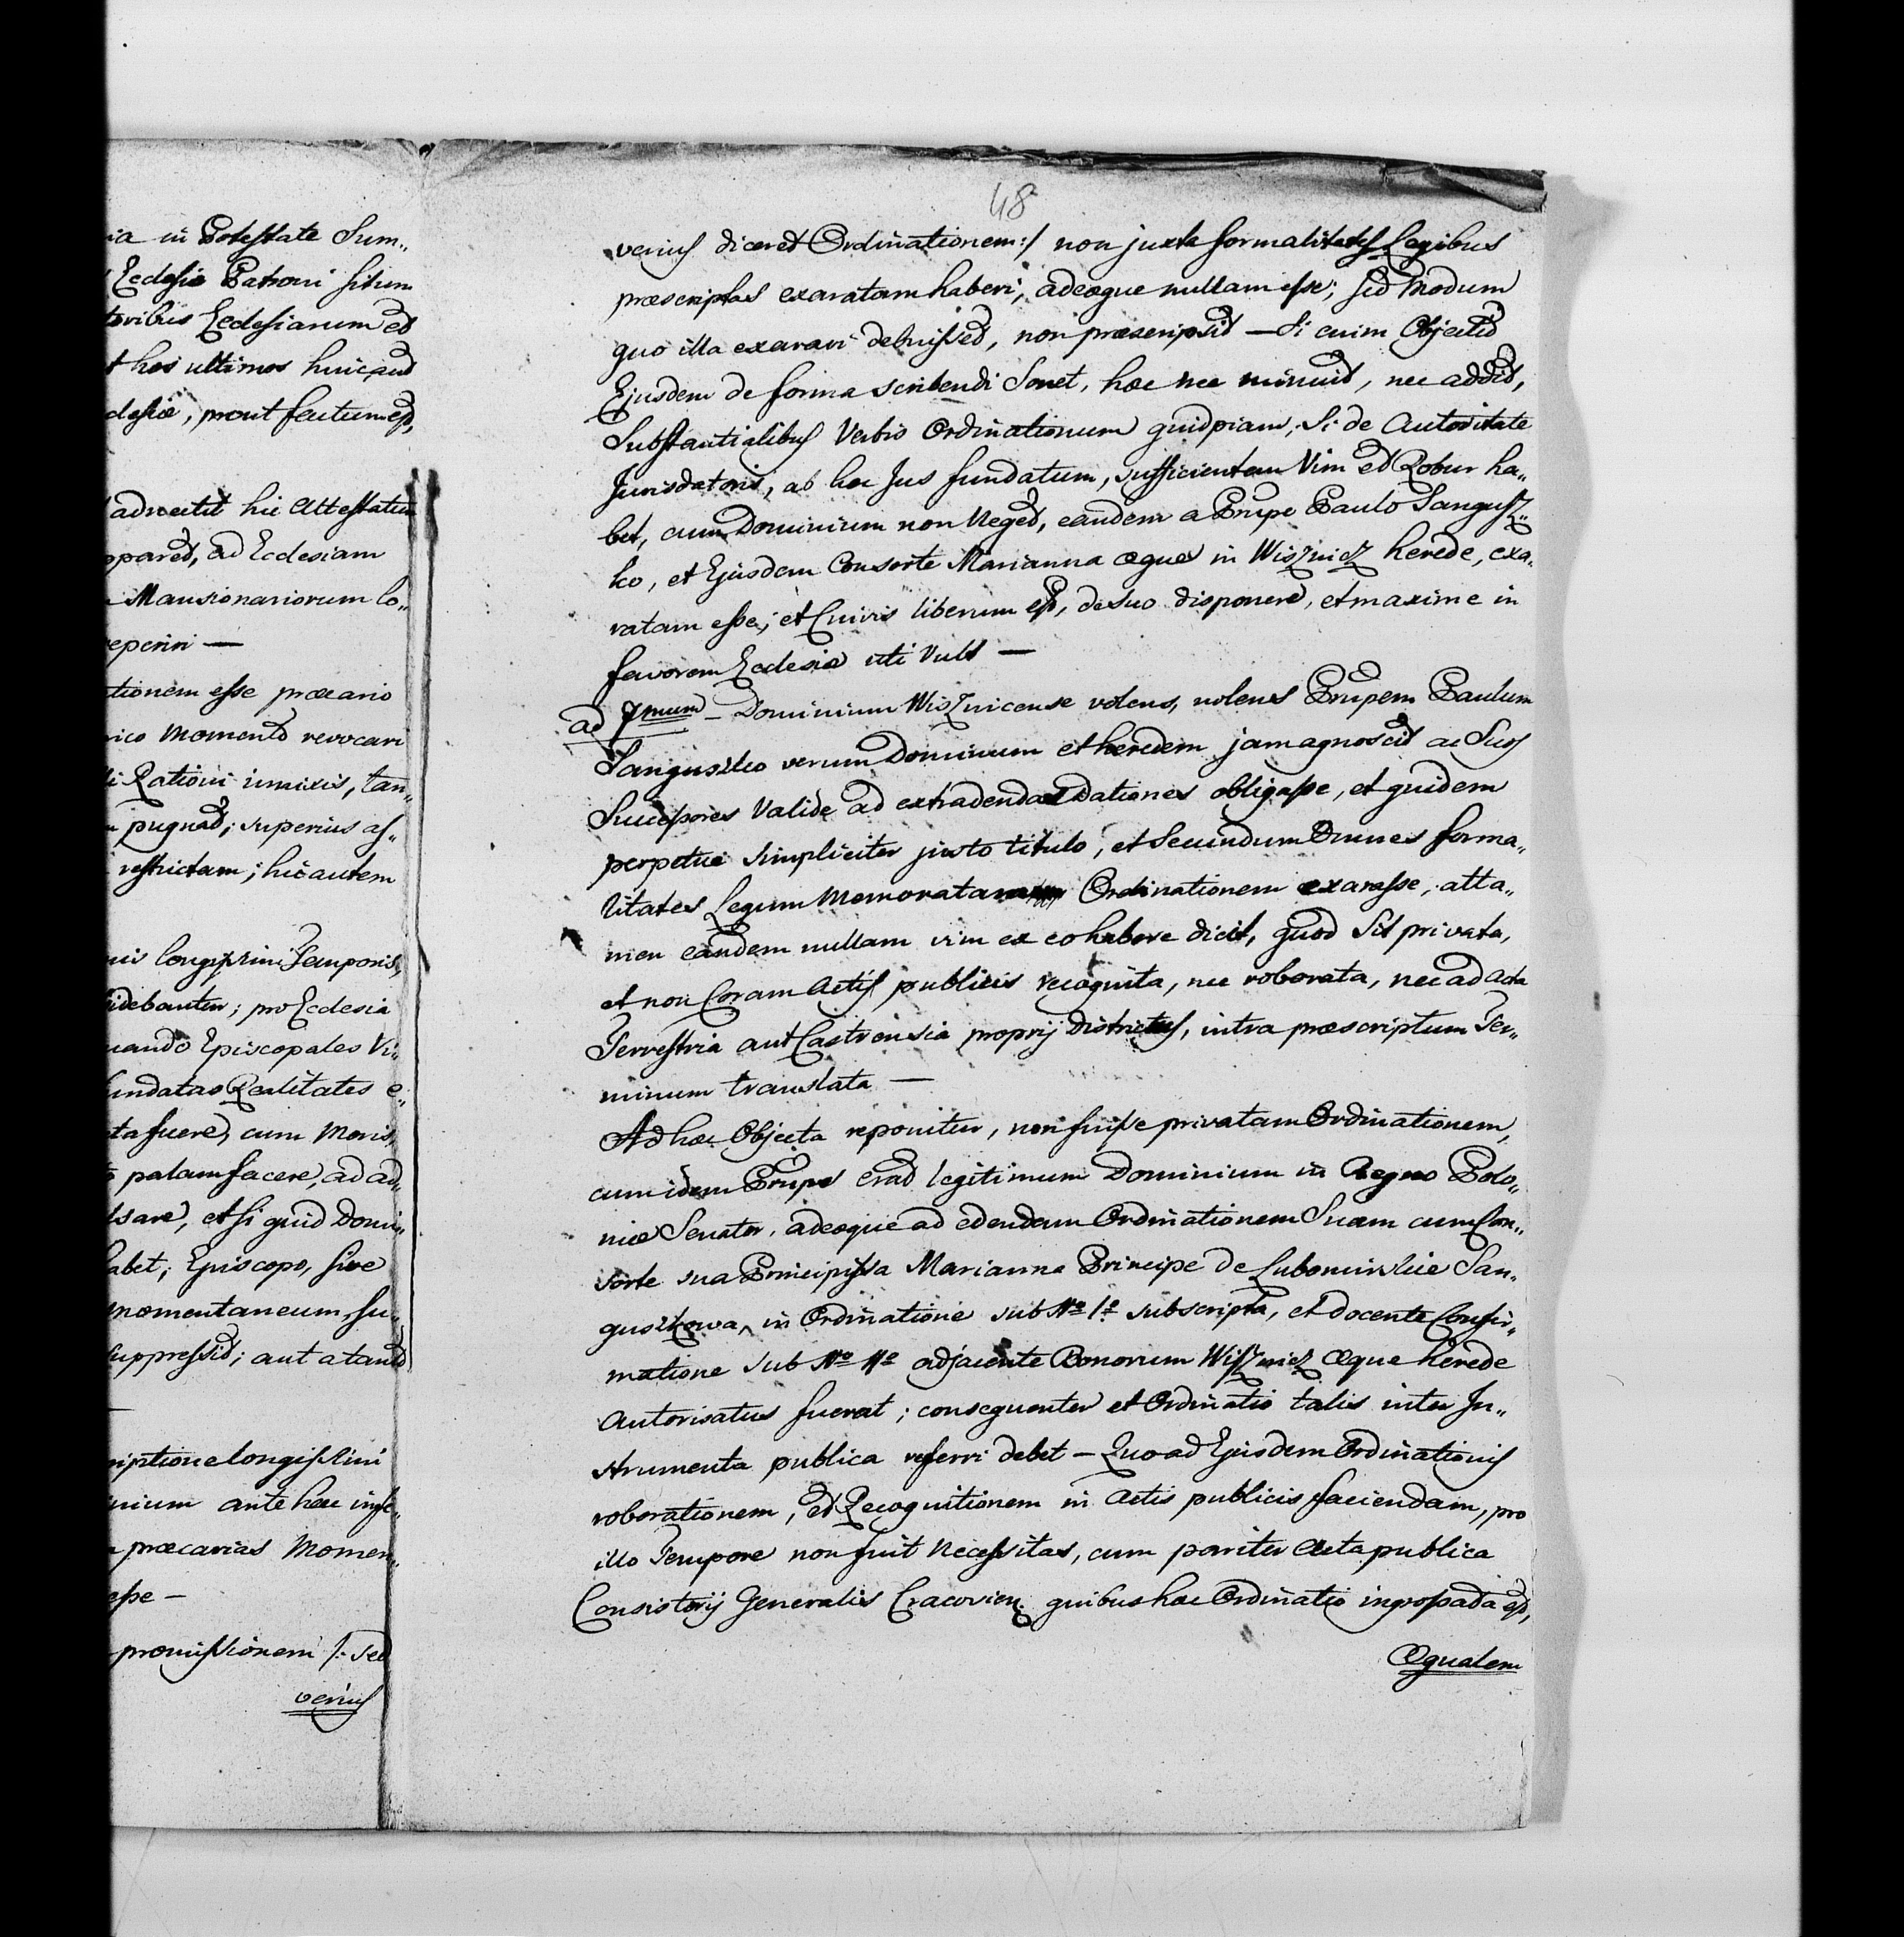 ia in Potestate Sum„
Ecclesiæ Patroni situm
toribus Ecclesiarum et
t hos ultimos huic, aut
clesiæ, prout factum est,
advertit hic Attestatum
pparet, ad Ecclesiam
Mansionariorum lo„
eperiri —
tionem esse precario
rico Momento revocari
i Rationi innixis, tan„
pugnat; superius as„
restrictam; hic autem
nis longissimi Temporis,
idebantur; pro Ecclesia
uando Episcopales Vi„
undatas Realitates e„
ta fuere, cum Moris
palam facere, ad ad„
lsare, et si quid Domi„
abet; Episcopo, sive
momentaneum, su„
suppressit; aut a tanto
—
riptione longissimi
nium ante hæc inse„
præcarias Momen„
esse —
promissionem /: sed
verius
48
verius diceret Ordinationem :/ non juxta formalitates Legibus
præscriptas exaratam haberi, adeoque nullam esse; sed Modum
quo illa exarari debuisset, non præscripsit — Si enim Objectio
Ejusdem de forma scribendi Sonet, hæc nec minuit, nec addit,
Substantialibus Verbis Ordinationum quidpiam; Si de Autoritate
Jurisdatoris, ab hoc Jus fundatum, sufficientem Vim et Robur ha„
bet, cum Dominium non Neget, eandem a Prŋpe Paulo Sangusz„
ko, et Ejusdem Consorte Marianna æque in Wisznicz herede, exa„
ratam esse; et Cuivis liberum est, de Suo disponere, et maxime in
favorem Ecclesiæ uti Vult —
ad 7mum — Dominium Wisznicense volens, nolens Prŋpem Paulum
Sanguszko verum Dominum et heredem jam agnoscit ac Suos
Successores Valide ad extradendas Dationes obligasse, et quidem
perpetue simpliciter justo titulo, et Secundum Omnes forma„
litates Legum Memoratam Ordinationem exarasse, atta„
men eandem nullam vim ex eo habere dicit, quod Sit privata,
et non Coram Actis publicis recognita, nec roborata, nec ad Acta
Terrestria aut Castrensia proprij Districtus, intra præscriptum Ter„
minum translata —
Ad hæc Objecta reponitur, non fuisse privatam Ordinationem,
cum idem Prŋps erat legitimum Dominium in Regno Polo„
niæ Senator, adeoque ad edendam Ordinationem Suam cum Con„
sorte sua Principissa Marianna Principe de Lubomirskie San„
guszkowa, in Ordinatione sub No 1o subscripta, et docente Confir„
matione sub No 11o adjacente Bonorum Wisznicz æque herede
Autorisatus fuerat; consequenter et Ordinatio talis inter In„
strumenta publica referri debet — Quo ad Ejusdem Ordinationis
roborationem, et Recognitionem in Actis publicis faciendam, pro
illo Tempore non fuit Necessitas, cum pariter Acta publica
Consistorij Generalis Cracovien: quibus hæc Ordinatio ingrossata est,
Æqualem